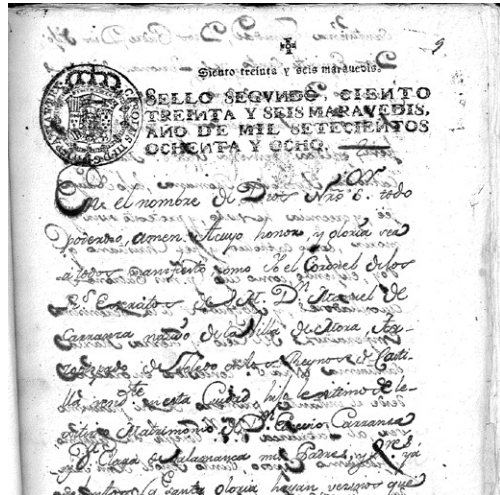 9
Siento treinta y seis maravedis
SELLO SEGVNDO, CIENTO
TREINTA Y SEIS MARAVEDIS,
AÑO DE MIL SETECIENTOS
OCHENTA Y OCHO.
En el nombre de Dios Nrõ S.or todo
poderoso, amen. A cuyo honor, y gloria sea
a todos manifiesto como Yo el Coronel de los
R.s Exercitos de S. M. D.n Manuel de
Carranza nativo de la Villa de Mora, Ar-
zobispado de Toledo en los Reynos de Casti-
lla, resid.te en esta Ciudad, hijo lexitimo de le-
xitimo Matrimonio de D.n Carranza
y D.a Clara de Salamanca mis Padres, ya
en santa gloria hayan